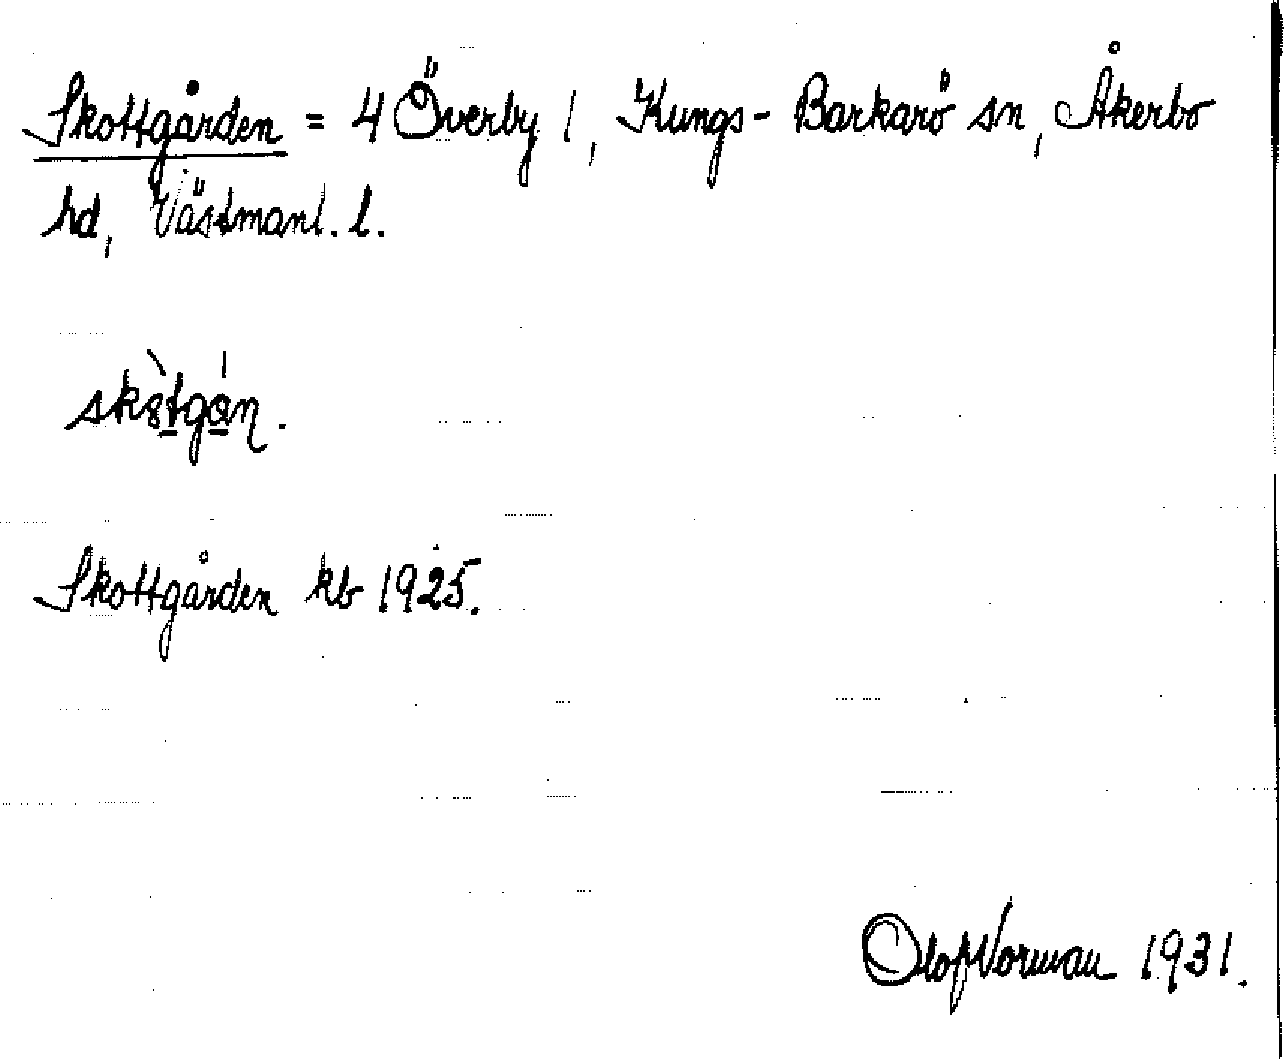 Skottgården = 4 Överby 1, Kungs-Barkarö sn, Åkerbo
hd, Västmanl. l.
Skottgården kb 1925.
Olof Norman 1931.